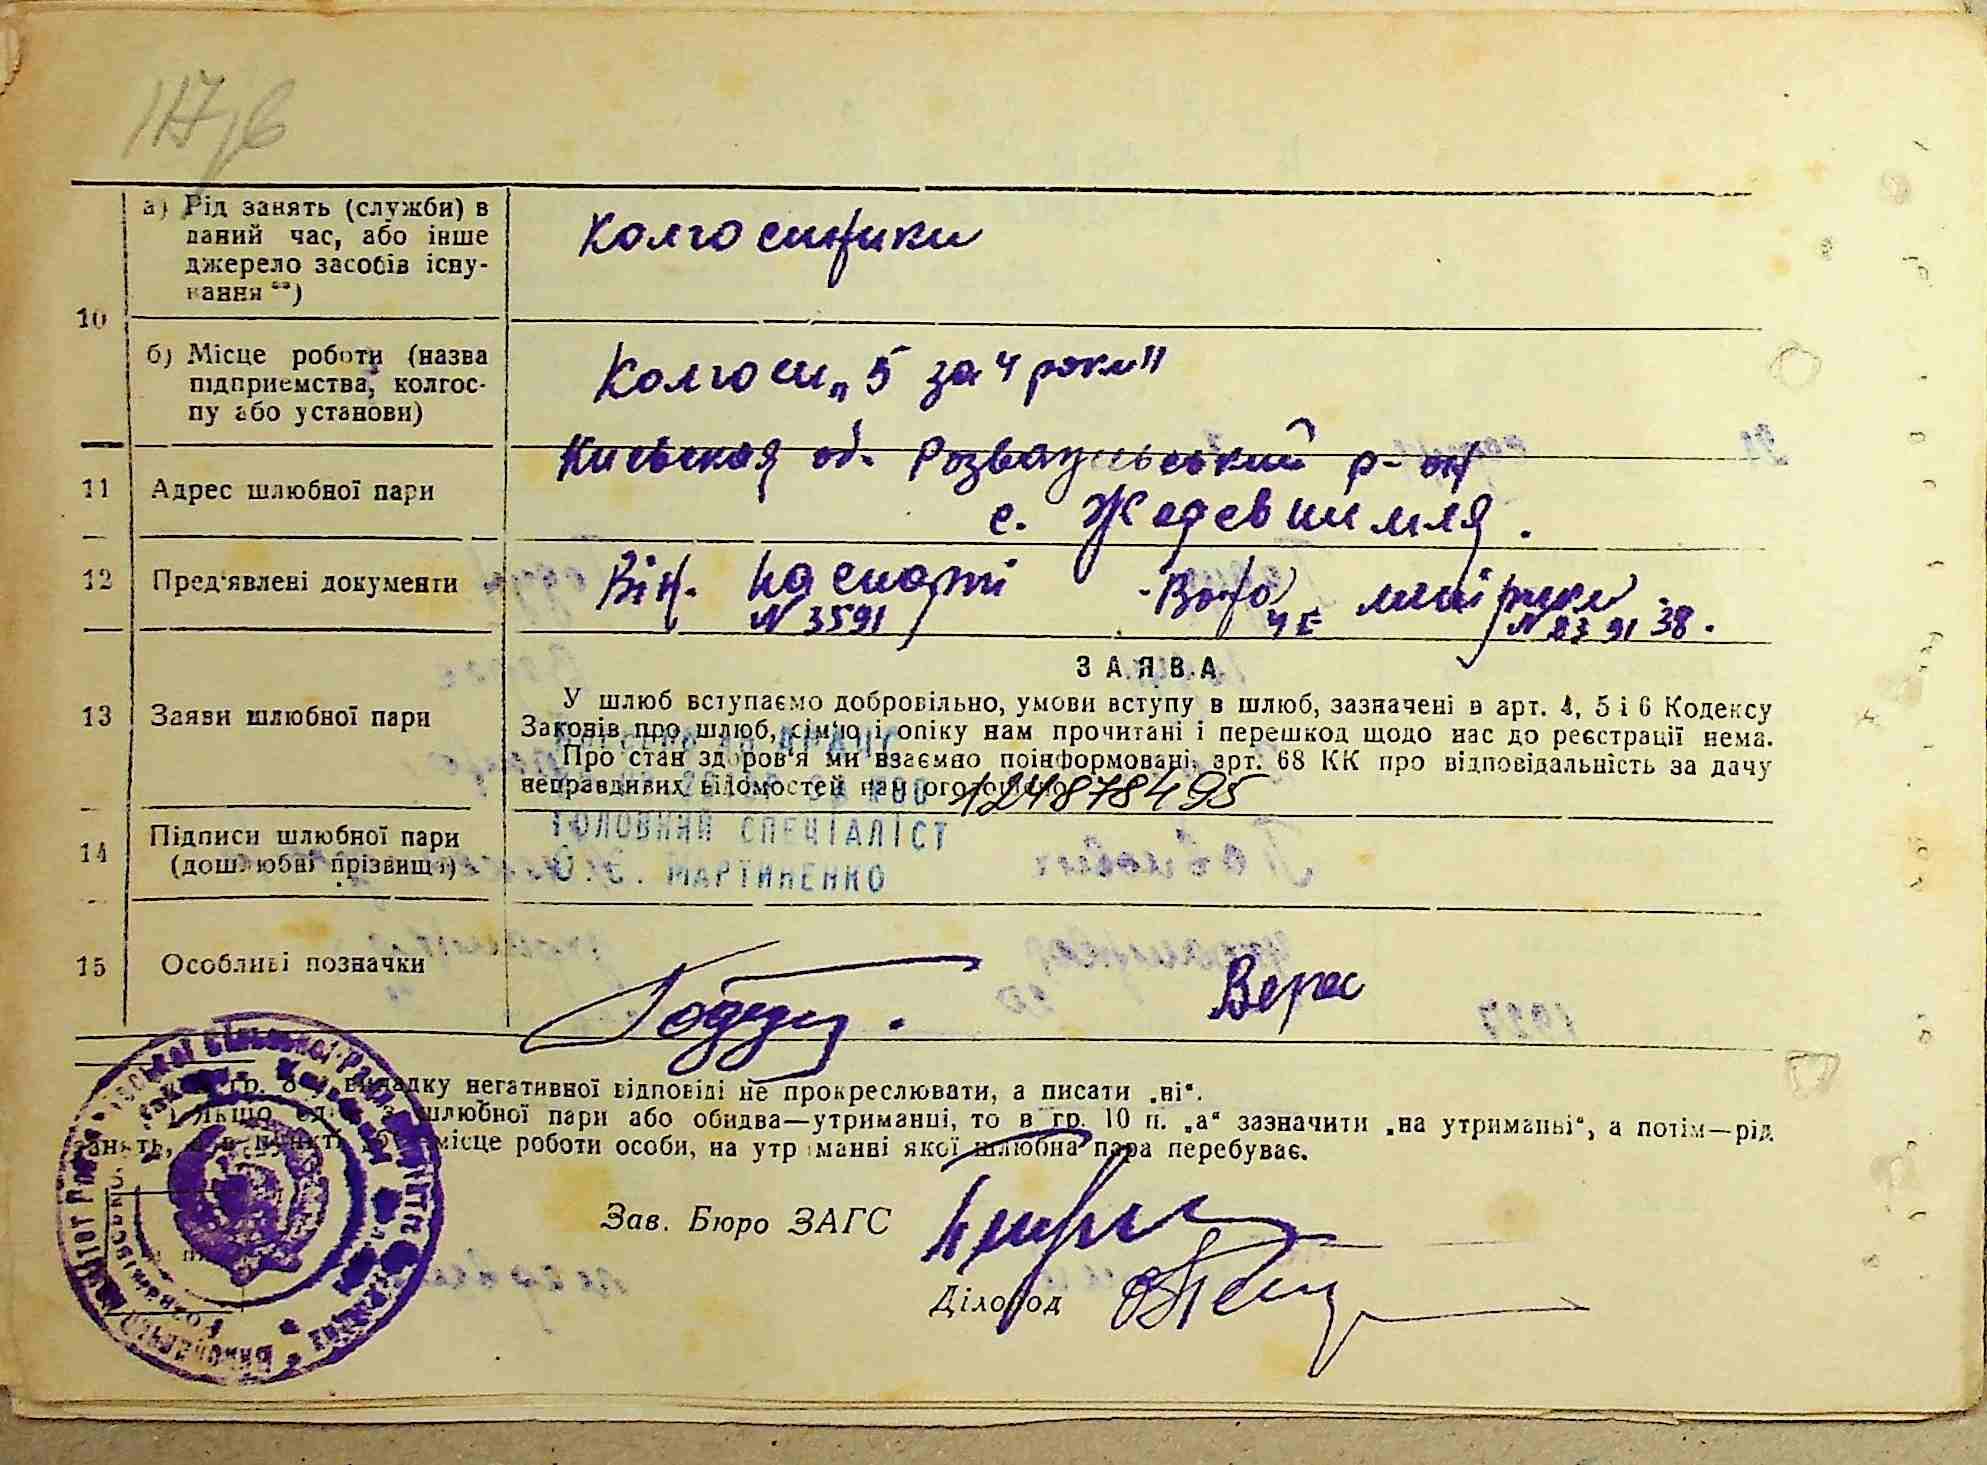 117/6
а) Рід занять (служби) в
даний час, або інше
джерело засобів існу-
вання **)
Колгоспники
10
б) Місце роботи (назва
підприємства, колгос-
пу або установи)
Колгосп „5 за 4 роки"
11
Адрес шлюбної пари
Киевская об. Розважевський р-он
с.
12
Пред'явлені документи
Він. паспорт
N 3591
Вона
N 23 91 38.
13
Заяви шлюбної пари
ЗАЯВА
У шлюб вступаємо добровільно, умови вступу в шлюб, зазначені в арт. 4, 5 і 6 Кодексу
Законів про шлюб, сім'ю і опіку нам прочитані і перешкод щодо нас до реєстрації нема.
Про стан здоров'я ми взаємно поінформовані, арт. 68 КК про відповідальність за дачу
неправдивих відомостей нам оголошено
124878495
14
Підписи шлюбної пари
(дошлюбні прізвища)
ГОЛОВНИЙ СПЕЦІАЛІСТ
МАРТИНЕНКО
15
Особливі позначки
Верес
гр. 8 у випадку негативної відповіді не прокреслювати, а писати „ні".
Якщо один з шлюбної пари або обидва—утриманці, то в гр. 10 п. „а" зазначити „на утриманні", а потім—рід
занять, а в пункті місце роботи особи, на утриманні якої шлюбна пара перебуває.
Зав. Бюро ЗАГС
Діловод